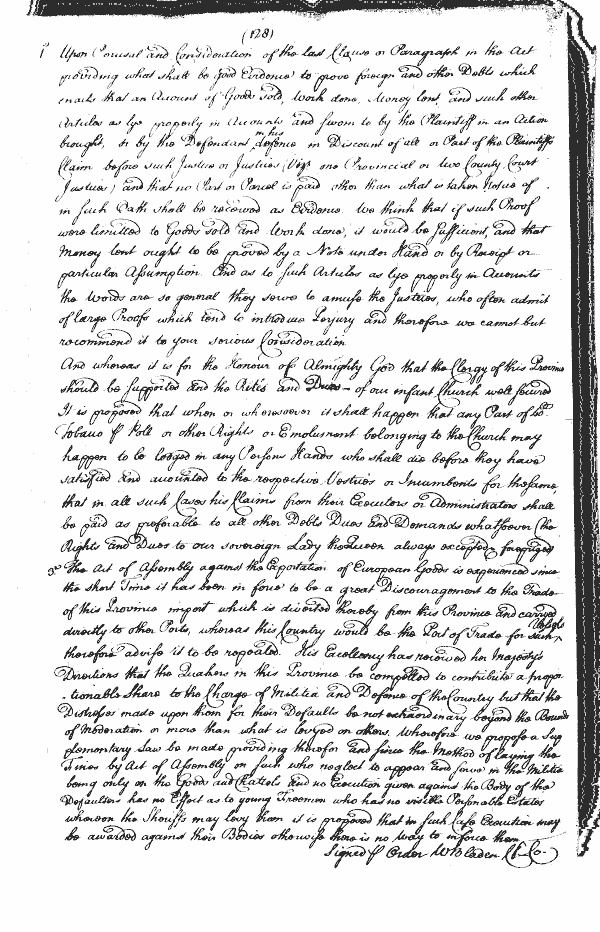 (128)
Upon Perusal and Consideration of the last Clause or Paragraph in the Act
providing what shall be good Evidence to prove foreign and other Debts which
enacts that an Account of Goods sold, Work done, Money lent, and such other
Articles as lye properly in Accounts and sworn to by the Plaintiff in an Action
brought, or by the Defendant in his defence in Discount of all or Part of the Plaintiffs
Claim before such Justice or Justices Vizt one Provincial or two County Court
Justices, and that no Part or Parcel is paid other than what is taken Notice of
in such Oath shall be received as Evidence. We think that if such Proof
were limitted to Goods sold and Work done, it would be sufficient, and that
Money lent ought to be proved by a Note under Hand or by Receipt or
particular Assumption. And as to such Articles as lye properly in Accounts
the Words are so general they serve to amuse the Justices, who often admit
of large Proofs which tend to introduce Perjury and therefore we cannot but
recommend it to your serious Consideration
And whereas it is for the Honour of Almighty God that the Clergy of this Province
should be supported and the Rights and Dues of our infant Church well secured
It is proposed that when or wheresoever it shall happen that any Part of the
Tobacco p Poll or other Rights or Emolument belonging to the Church may
happen to be lodged in any Persons Hands who shall die before they have
satisfied and accounted to the respective Vestries or Incumbents for the same,
that in all such Cases his Claims from their Executors or Administrators shall
be paid as preferable to all other Debts Dues and Demands whatsoever (the
Rights and Dues to our sovereign Lady the Queen always excepted)
3d The Act of Assembly against the Exportation of European Goods is experienced since
the short Time it has been in force to be a great Discouragement to the Trade
of this Province import which is diverted thereby from this Province and carryed
directly to other Ports, whereas this Country would be the Port of Trade for such Vessels
therefore advise it to be repealed. His Excellency has received her Majesty's
Directions that the Quakers in this Province be compelled to contribute a propor
-tionable Share to the Charge of Militia and Defence of the Country but that the
Distresses made upon them for their Defaults be not extraordinary beyond the Bounds
of Moderation or more than what is levyed on others. Wherefore we propose a Sup
plementary Law be made providing therefor And since the Method of laying the
Fines by Act of Assembly on such who neglect to appear and serve in the Militia
being only on the Goods and Chattels and no Execution given against the Body of the
Defaulters has no Effect as to young Freemen who has no visible Personable Estates
whereon the Sheriffs may levy them it is proposed that in such Case Execution may
be awarded against their Bodies otherwise there is no Way to inforce them
Signed p Order W Bladen Cl. Co.